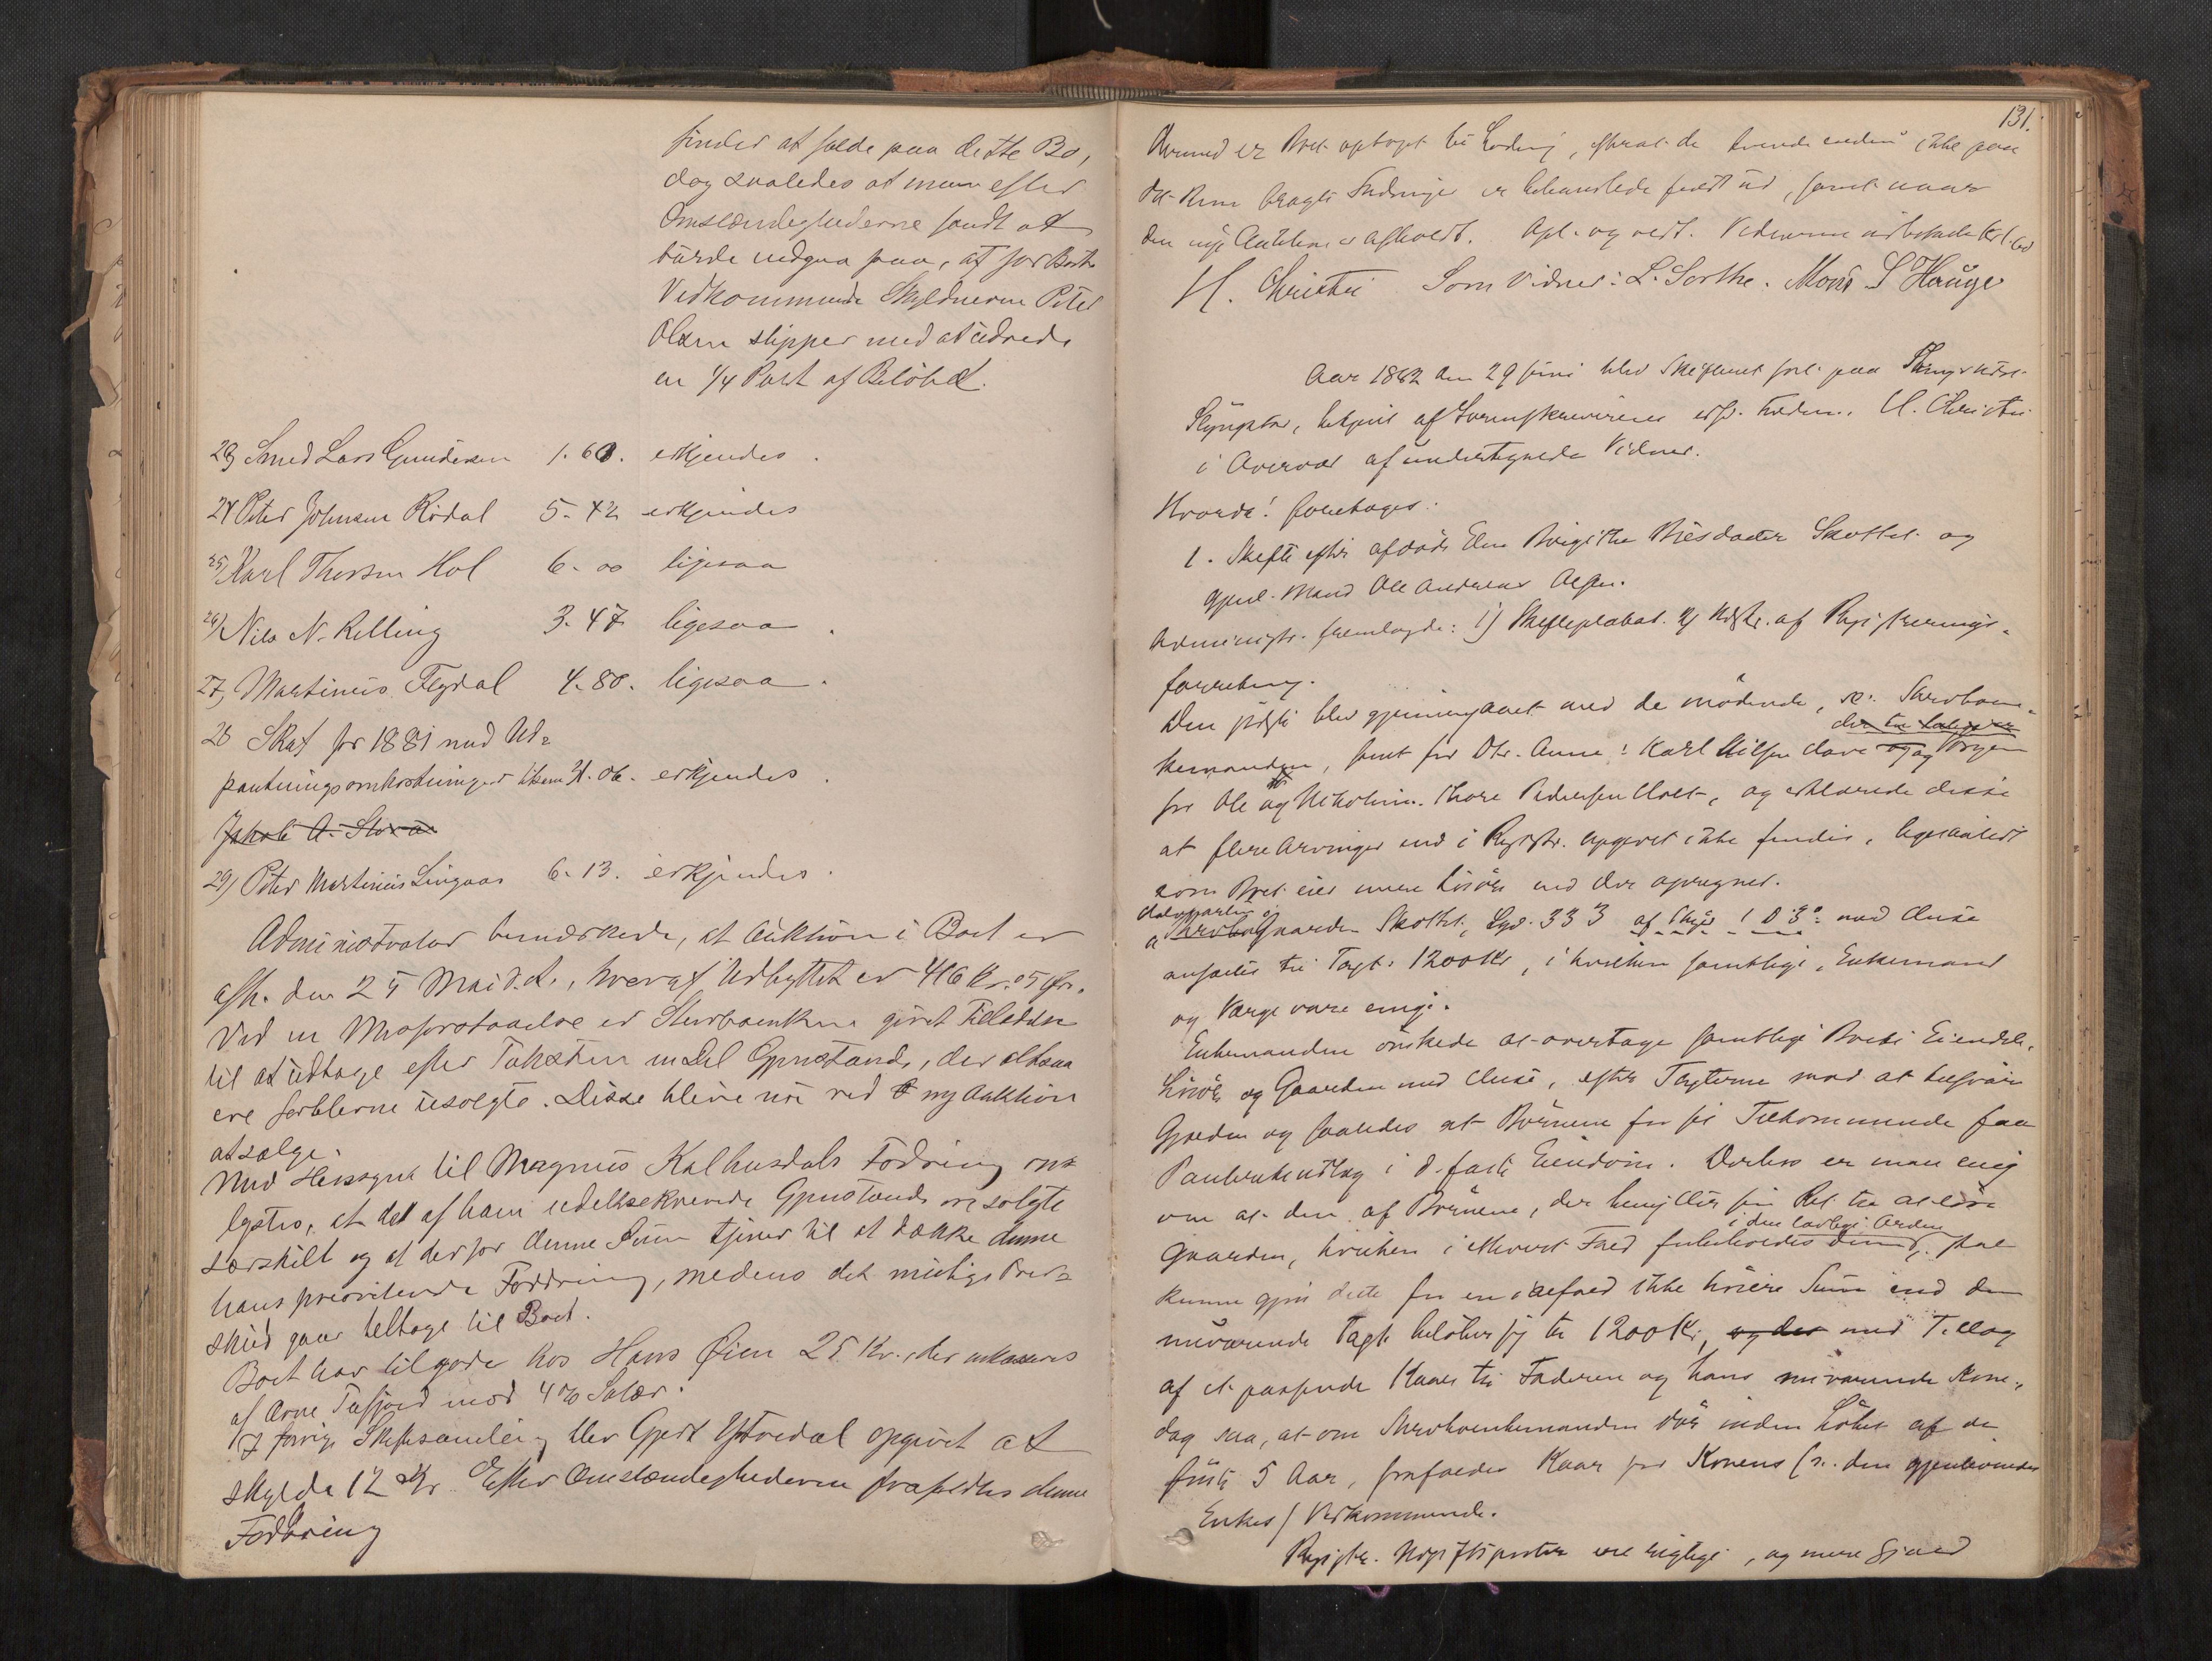 finder at falde paa dette Bo,
dog saaledes at man efter
Omstændighederne fandt at
burde indgaa paa, at for Boets
Vedkommende Skyldneren Peter
Olsen slipper med at udrede
en 1/4 Part af Beløbet.
23, Smed Lars Gundersen 1. 60. erkjendes.
24 Peter Johnsen Rødal 5-42 erkjendes
25, Karl Thorsen Hol 6-00 ligesaa
26, Nils N. Relling 3.47 ligesaa.
27, Martinus Flydal 4.80. ligesaa.
28 Skat for 1881 med Ud-
pantningsomkostninger tilsam. 21.06. erkjendes.
Jakob A. Stora
29, Peter Martinus Lingaas 6.13. erkjendes.
Administrator bemærkede, at Auktion i Boet er
afh. den 25 Mai d. A., hvoraf Udbyttet er 416 Kr. 05 Øre.
Ved en Misforstaaelse er Stervboenken givet Tilladelse
til at udtage efter Taksten en Del Gjenstande, der altsaa
ere forblevne usolgte. Disse blive nu ved ny Auktion
at sælge.
Med Hensyn til Magnus Kalhusdals Fodring op-
lystes, at de af ham udeltskrevne Gjenstande ere solgte
særskilt og at derfor denne Sum tjener til at dække denne
hans prioriterede Fordring, medens det mulige Over-
skud gaar tilbage til Boet.
Boet har tilgode hos Hans Øien 25 Kr., der inkasseres
af Arne Tafjord mod 4% Salær.
I forrige Skiftesamling blev Gjert Ytredal opgivet at
skylde 12 Kr. Efter Omstændighederne frafaldes denne
Fodring
131.
Hermed er Boet optaget til Lodning, efterat de endnu ikke paa
det Rene bragte Fodringer er behandlede fuldt ud, samt naar
den nye Auktion er afholdt. Opl. og vedt. Vidnerne udbetaltes
H. Christie Som Vidner: L. Sorthe. Mons S Hauge
Aar 1882 den 29 Juni blev Skifteret sat paa
Slyngstad, betjent af Sorenskriverens edsv. Fuldm. H. Christie
i Overvær af undertegnede Vidner.
Hvorda! foretoges:
1. Skifte efter afdøde Elen Birgithe Nilsdatter Skottet og
gjenl. Mand Ole Andreas Olsen.
Administr. fremlagde: 1) Skifteplakat. 2) Udskr. af Registrerings-
forretning.
Den sidste blev gjennemgaaet med de mødende, sc: Stervboen-
der
kemanden, samt for Dtr. Anne: Karl Nilsen Dove og Vergen
for Ole og Nikoline. Thore Pedersen Holt, og erklærede disse
at flere Arvinger end i Registr. opgivet ikke findes, ligesaalidt
som Boet eier mere Løsøre end der opregnet.
Gaarden Skottet, Lno. 333 af Skyld 1 D. 3 med Huse
ansattes til Taxt. 1200 Kr, i hvilken samtlige, Enkemand
og Værge vare enige.
Enkemanden ønskede at overtage samtlige Boets Eiendele,
Løsøre og Gaarden med Huse, efter Taxterne mod at tilsvare
Gjælden og saaledes at Børnene for sit Tilkommende faa
Panteretsudlæg i d. faste Eiendom. Derhos er man enig
om at den af Børnene, der benytter sin Ret til at løse
i den lovlige Orden
Gaarden, hvilken i ethvert Fald forbeholdes dem, skal
kunne gjøre dette for en i alfald ikke høiere Sum end den
nuværende Taxt beløber sig til 1200 Kr, og der med Tillæg
af et passende Kaar til Faderen og hans nuværende Kone,
dog saa, at om Stervboenkemanden dør inden Løbet af de
første 5 Aar, frafaldes Kaar for Konens (sc. den gjenlevendes
Enkes) Vedkommende.
Registr. Udgiftsposter ere rigtige, og mere Gjæld